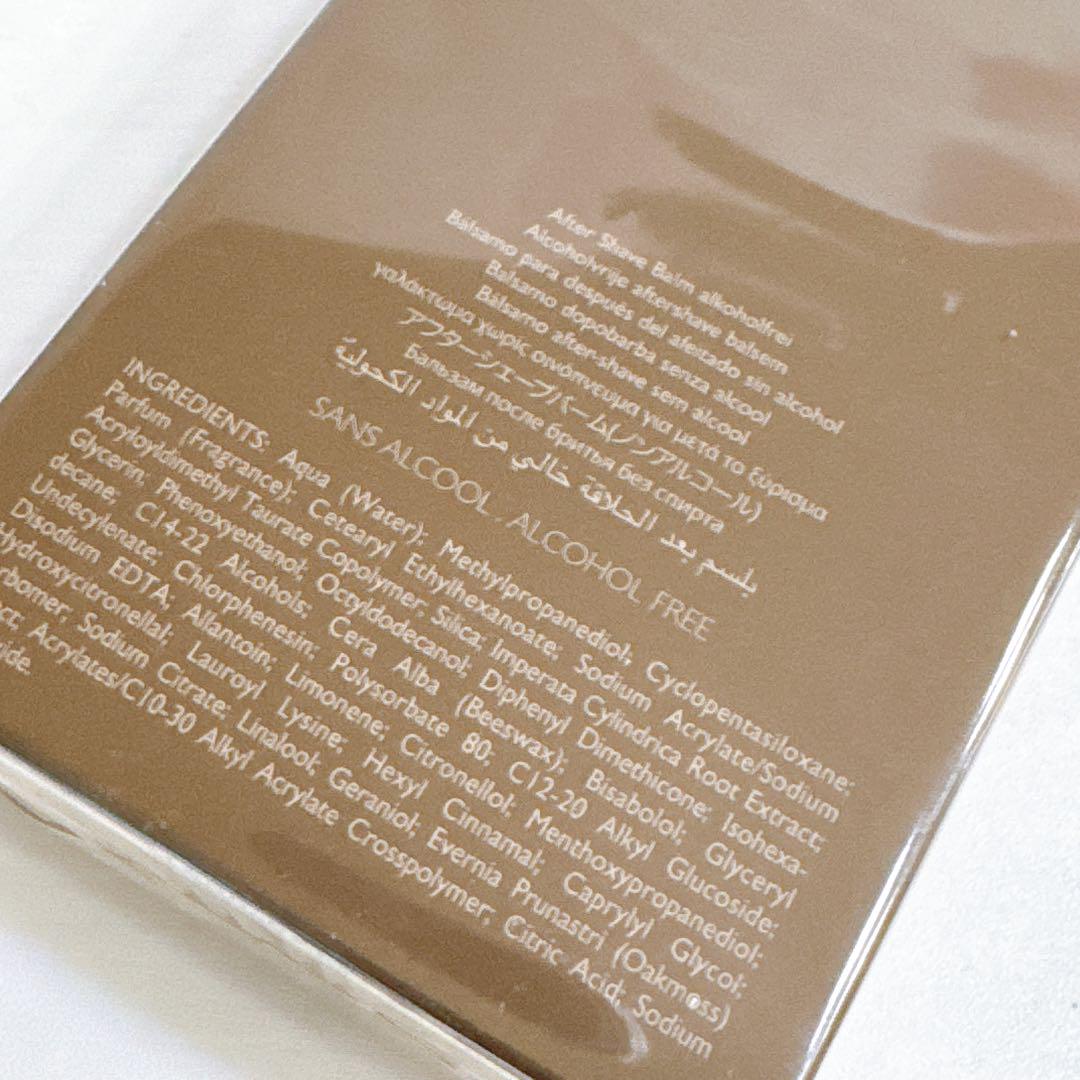 After Shave Balm alkoholfrei
Alcoholvrije aftershave balsem
Bálsamo para después del afeitado sin alcohol
Balsamo dopobarba senza alcool
Bálsamo after-shave sem alcool
γαλάκτωμα χωρίς οινόπνευμα για μετά το ξύρισμα
アフターシェーブバーム(ノンアルコール)
Бальзам после бритья без спирта
بلسم بعد الحلاقة خالي من المواد الكحولية
SANS ALCOOL, ALCOHOL FREE
INGREDIENTS: Aqua (Water); Methylpropanediol; Cyclopentasiloxane;
Parfum (Fragrance); Cetearyl Ethylhexanoate; Sodium Acrylate/Sodium
Acryloyldimethyl Taurate Copolymer; Silica; Imperata Cylindrica Root Extract;
Glycerin, Phenoxyethanol; Octyldodecanol; Diphenyl Dimethicone; Isohexa-
decane; C14-22 Alcohols; Cera Alba (Beeswax); Bisabolol; Glyceryl
Undecylenate; Chlorphenesin; Polysorbate 80; C12-20 Alkyl Glucoside;
Disodium EDTA, Allantoin; Limonene; Citronellol; Menthoxypropanediol;
Hydroxycitronellal; Lauroyl Lysine; Hexyl Cinnamal; Caprylyl Glycol;
Sodium Citrate; Linalool; Geraniol; Evernia Prunastri (Oakmoss)
Acrylates/C10-30 Alkyl Acrylate Crosspolymer; Citric Acid; Sodium